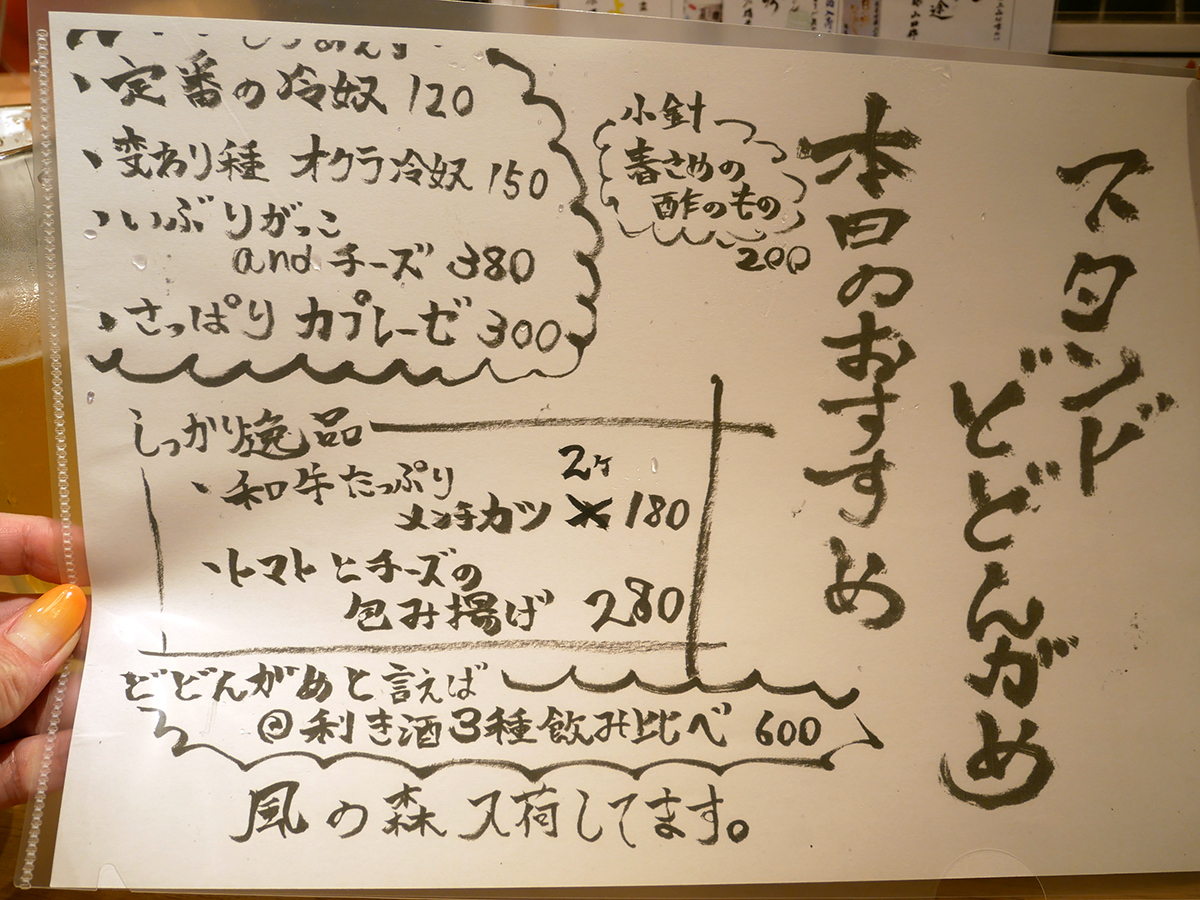 スタンド
どどんがめ
本日のおすすめ
小針
春さめの
酢のもの
200
・定番の冷奴 120
・変わり種 オクラ冷奴 150
・いぶりがっこ
andチーズ 380
・さっぱり カプレーゼ 300
しっかり逸品
・和牛たっぷり
2ケ
メンチカツ 180
・トマトとチーズの
包み揚げ 280
どどんがめと言えば
利き酒3種飲み比べ 600
風の森入荷してます。